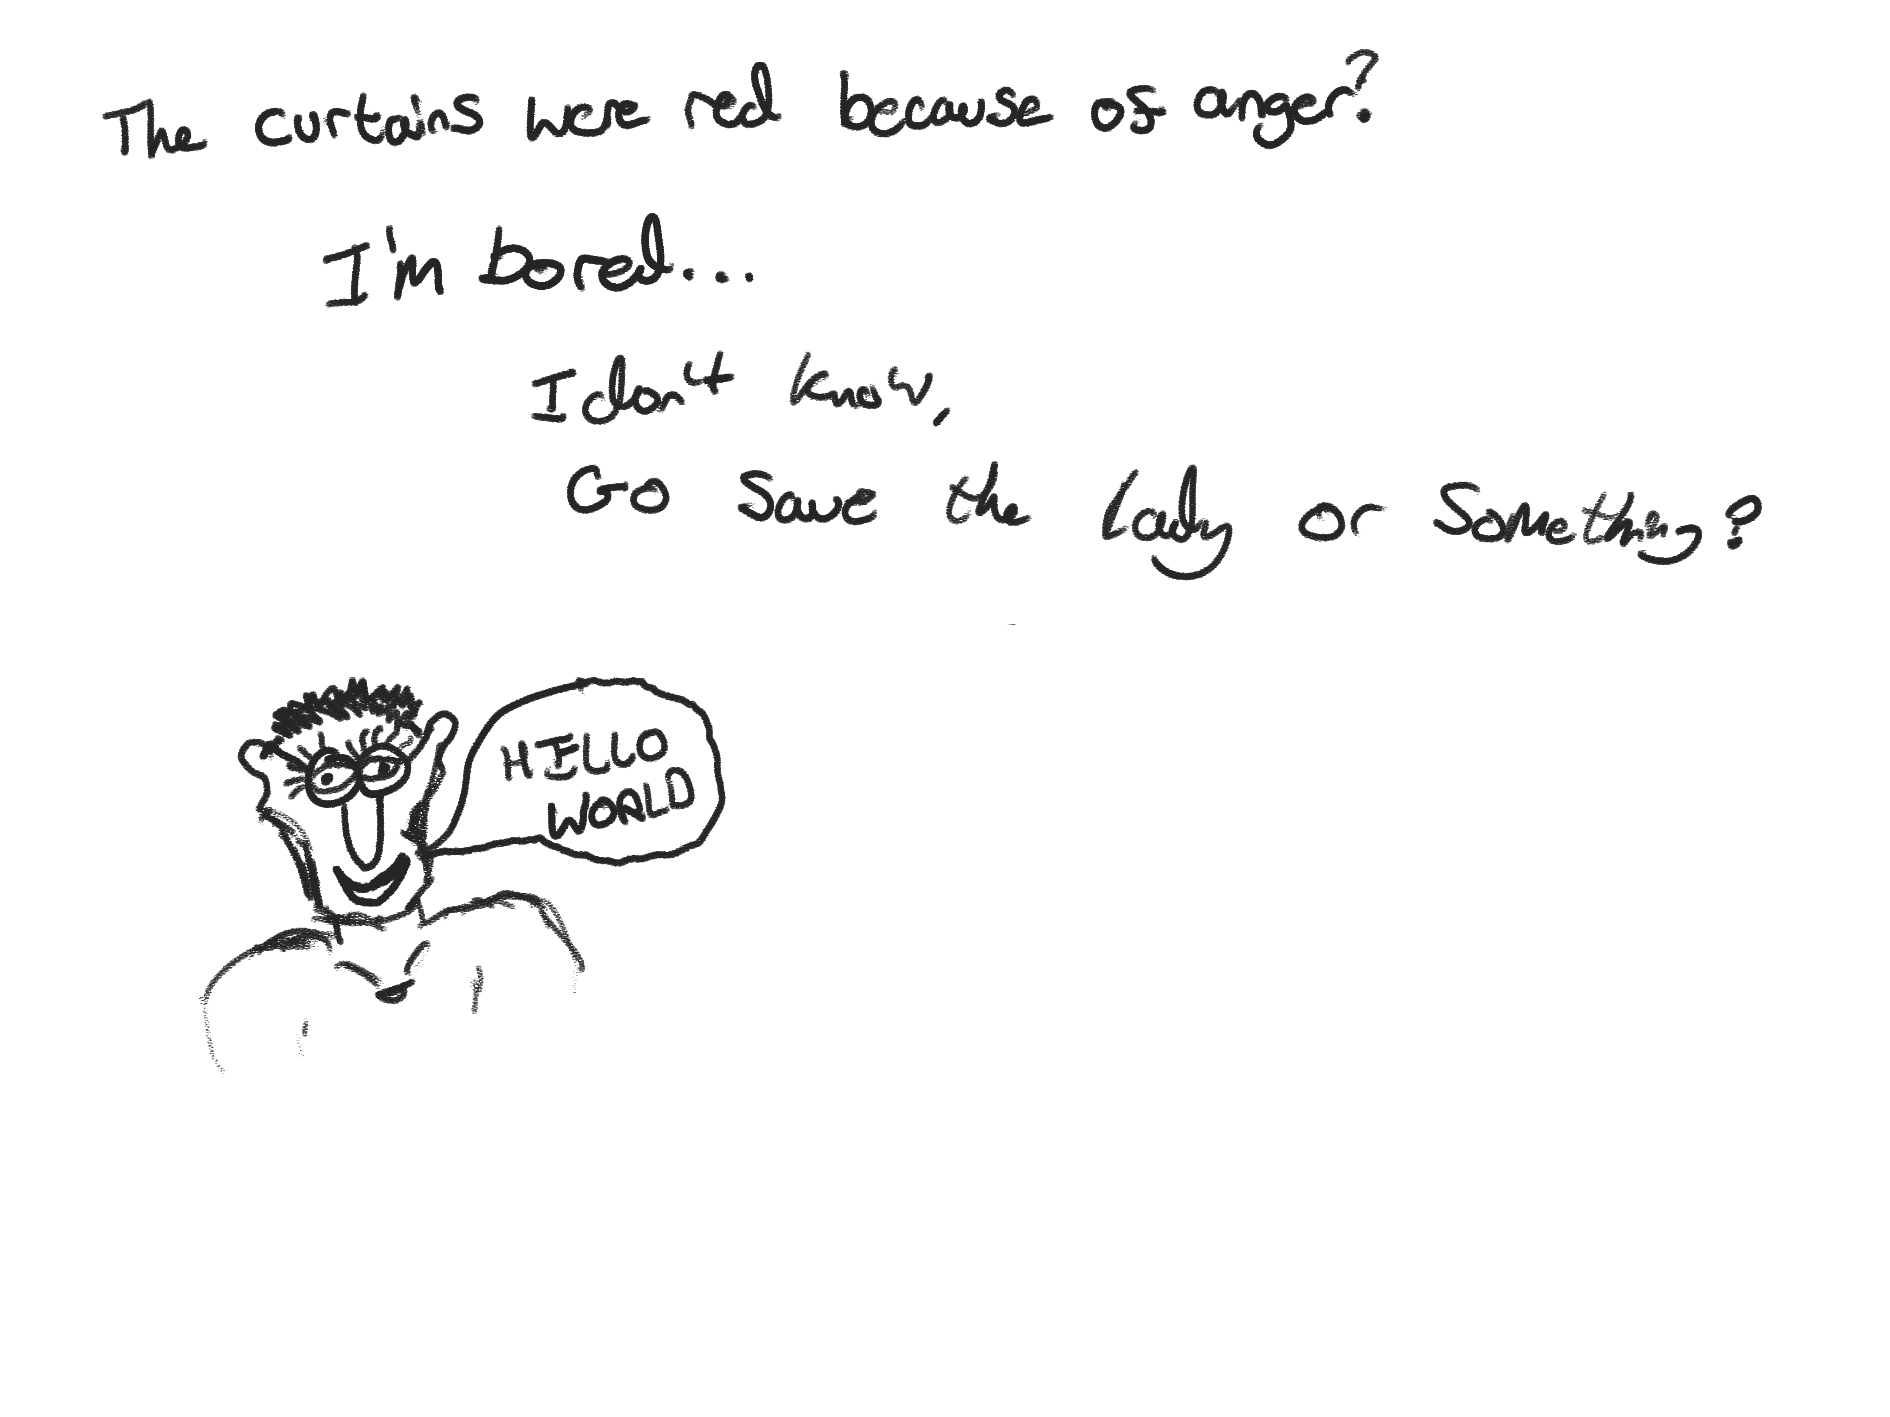 The curtains were red because of anger?
I'm bored...
I don't know,
Go save the lady or something?
HELLO
WORLD